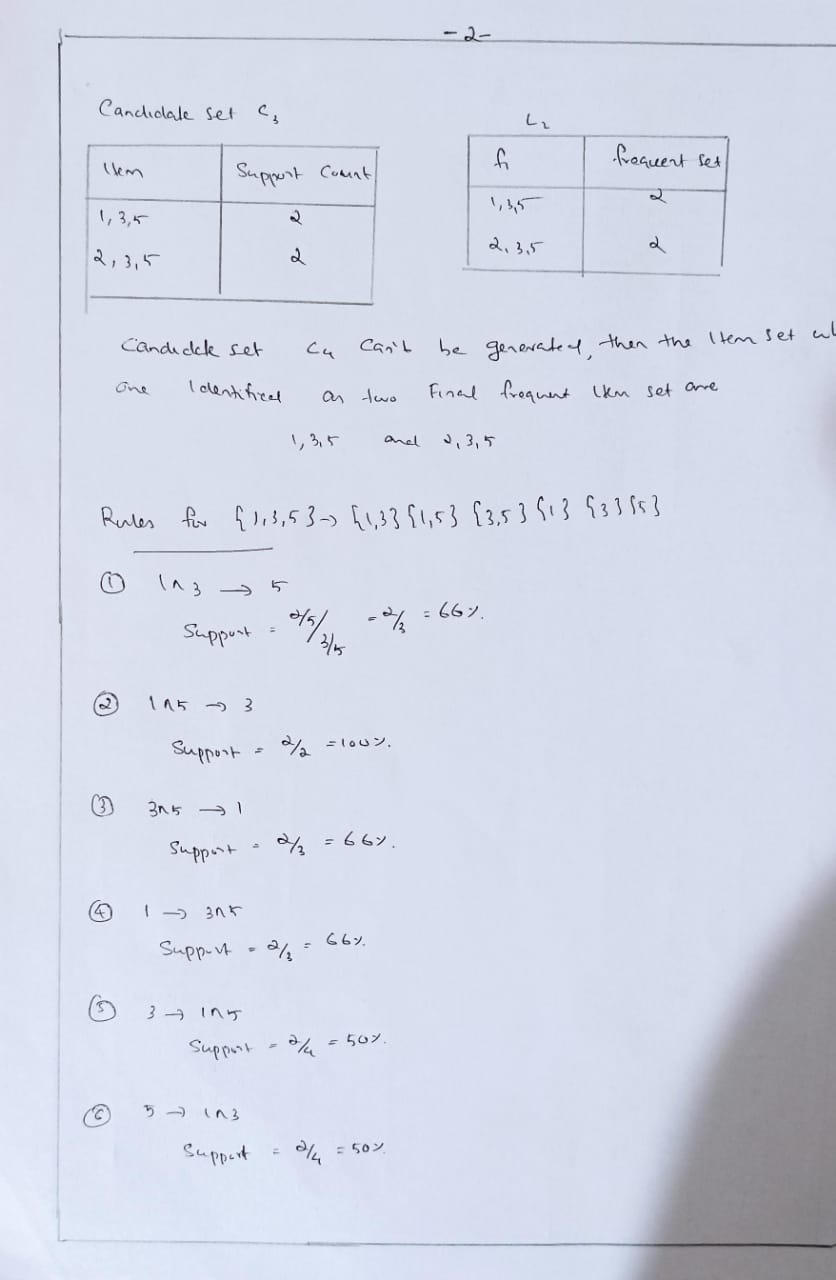 -2-
Candidate set C3
L2
Item Support Count
fi frequent set
1,3,5 2
1,3,5 2
2,3,5 2
2,3,5 2
Candidate set C4 Can't be generated, then the Item set
one Identified as two Final frequent Item set are
1,3,5 and 2,3,5
Rules for {1,3,5} → {1,3} {1,5} {3,5} {1} {3} {5}
① 1∩3 → 5
Support = 2/5 / 3/5 = 2/3 = 66%.
② 1∩5 → 3
Support = 2/2 = 100%.
③ 3∩5 → 1
Support = 2/3 = 66%.
④ 1 → 3∩5
Support = 2/3 = 66%.
⑤ 3 → 1∩5
Support = 2/4 = 50%.
⑥ 5 → 1∩3
Support = 2/4 = 50%.